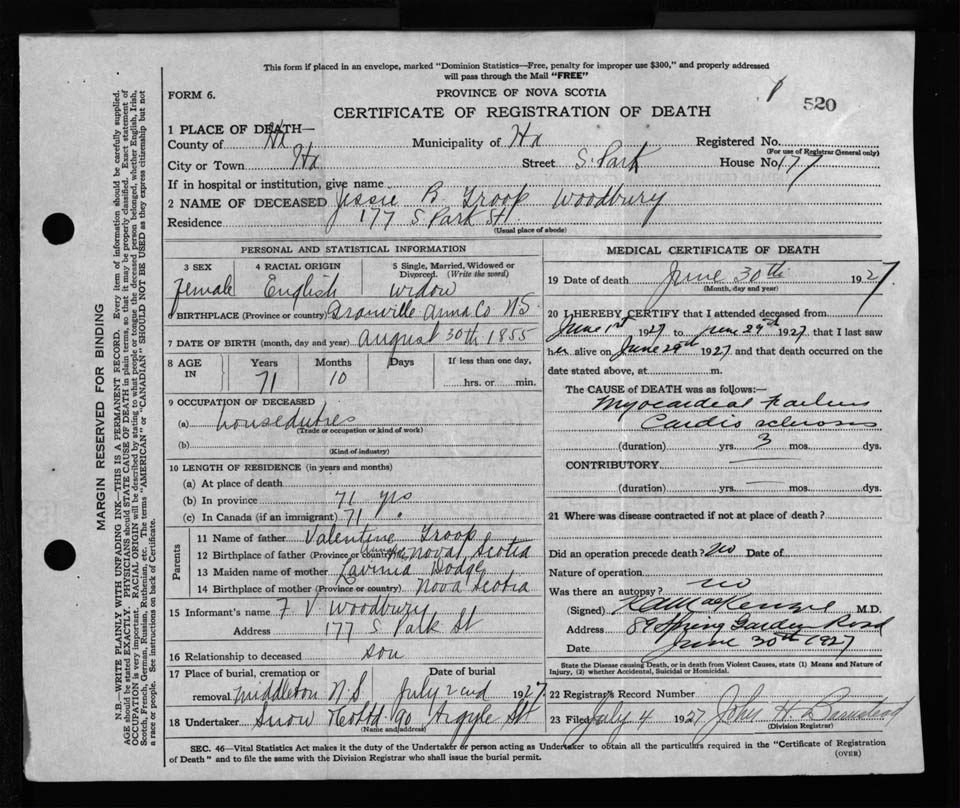 This form if placed in an envelope, marked "Dominion Statistics—Free, penalty for improper use $300," and properly addressed
will pass through the Mail "FREE"
FORM 6.
PROVINCE OF NOVA SCOTIA
520
CERTIFICATE OF REGISTRATION OF DEATH
1 PLACE OF DEATH—
County of Hx Municipality of Hx Registered No.
(For use of Registrar General only)
City or Town Hx Street S. Park House No. 177
If in hospital or institution, give name
2 NAME OF DECEASED Jessie B. Troop Woodbury
Residence 177 S. Park St.
(Usual place of abode)
PERSONAL AND STATISTICAL INFORMATION
3 SEX 4 RACIAL ORIGIN 5 Single, Married, Widowed or Divorced. (Write the word)
Female English widow
6 BIRTHPLACE (Province or country) Granville Anna Co NS
7 DATE OF BIRTH (month, day and year) August 30th 1855
8 AGE IN Years Months Days If less than one day,
71 10 hrs. or min.
9 OCCUPATION OF DECEASED
(a) houseduties
(Trade or occupation or kind of work)
(b)
(Kind of industry)
10 LENGTH OF RESIDENCE (in years and months)
(a) At place of death
(b) In province 71 yrs
(c) In Canada (if an immigrant) 71 "
Parents
11 Name of father Valentine Troop
12 Birthplace of father (Province or country) Nova Scotia
13 Maiden name of mother Lavinia Dodge
14 Birthplace of mother (Province or country) Nova Scotia
15 Informant's name F V Woodbury
Address 177 S Park St
16 Relationship to deceased son
17 Place of burial, cremation or removal Date of burial
Middleton N.S. July 2nd 1927
18 Undertaker Snow & Co Ltd 90 Argyle St
(Name and address)
MEDICAL CERTIFICATE OF DEATH
19 Date of death June 30th 1927
(Month, day and year)
20 I HEREBY CERTIFY that I attended deceased from
June 1st 1927 to June 29th 1927, that I last saw
her alive on June 29th 1927, and that death occurred on the
date stated above, at m.
The CAUSE of DEATH was as follows:—
Myocardial Failure
Cardio sclerosis
(duration) yrs. 3 mos. dys.
CONTRIBUTORY —
(duration) yrs. — mos. dys.
21 Where was disease contracted if not at place of death?
Did an operation precede death? No Date of
Nature of operation
Was there an autopsy? no
(Signed) MacKenzie M.D.
Address 89 Spring Garden Road
Date June 30th 1927
State the Disease causing Death, or in death from Violent Causes, state (1) Means and Nature of
Injury, (2) whether Accidental, Suicidal or Homicidal.
22 Registrar's Record Number
23 Filed July 4 1927 John H Barnstead
(Division Registrar)
SEC. 46—Vital Statistics Act makes it the duty of the Undertaker or person acting as Undertaker to obtain all the particulars required in the "Certificate of Registration
of Death" and to file the same with the Division Registrar who shall issue the burial permit.
(OVER)
MARGIN RESERVED FOR BINDING
N.B.—WRITE PLAINLY, WITH UNFADING INK—THIS IS A PERMANENT RECORD. Every item of information should be carefully supplied.
AGE should be stated EXACTLY. PHYSICIANS should STATE CAUSE OF DEATH in plain terms, so that it may be properly classified. Exact statement of
OCCUPATION is very important. RACIAL ORIGIN will be described by stating to what people or tongue the deceased person belonged, whether English, Irish,
Scotch, French, German, Russian, Ruthenian, etc. The terms "AMERICAN" or "CANADIAN" SHOULD NOT BE USED as they express citizenship but not
a race or people. See instructions on back of Certificate.